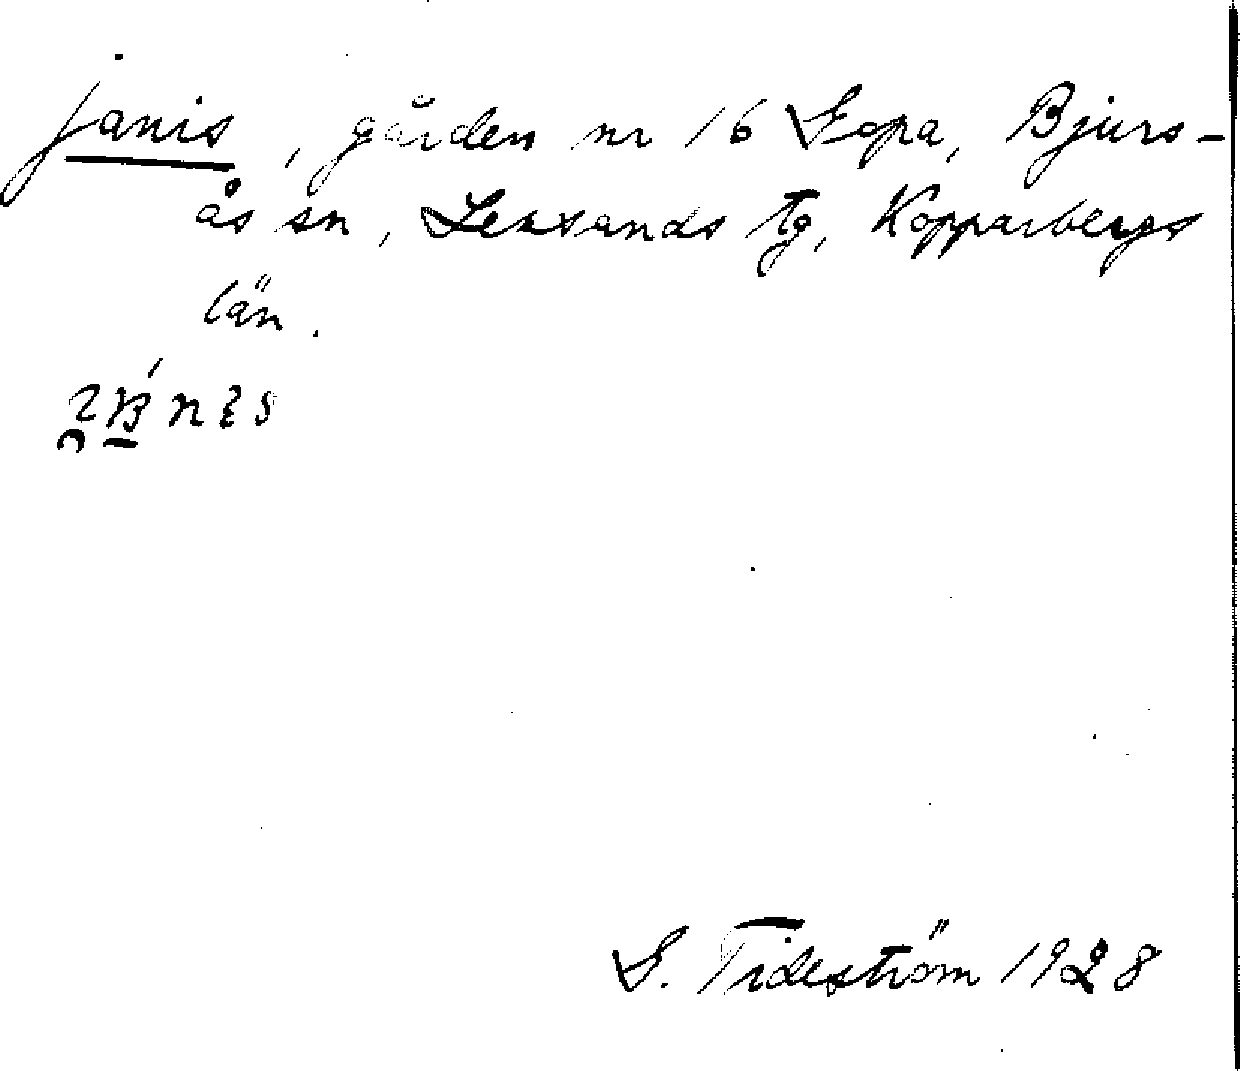 janis, gården nr 16 Sopa, Bjurs-
ås sn, Leksands tg, Kopparbergs
län.
S. Tideström 1928